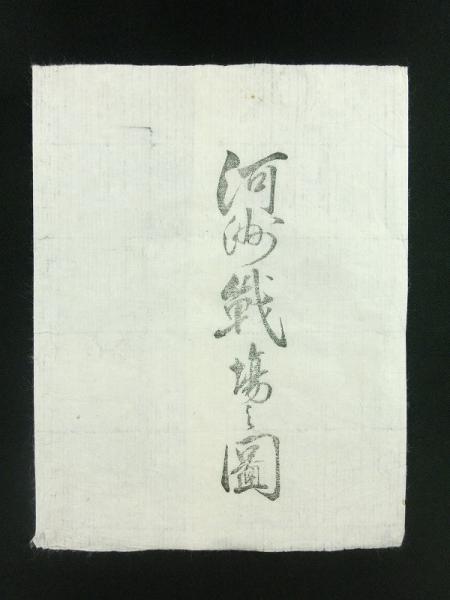 河州戰場之圖